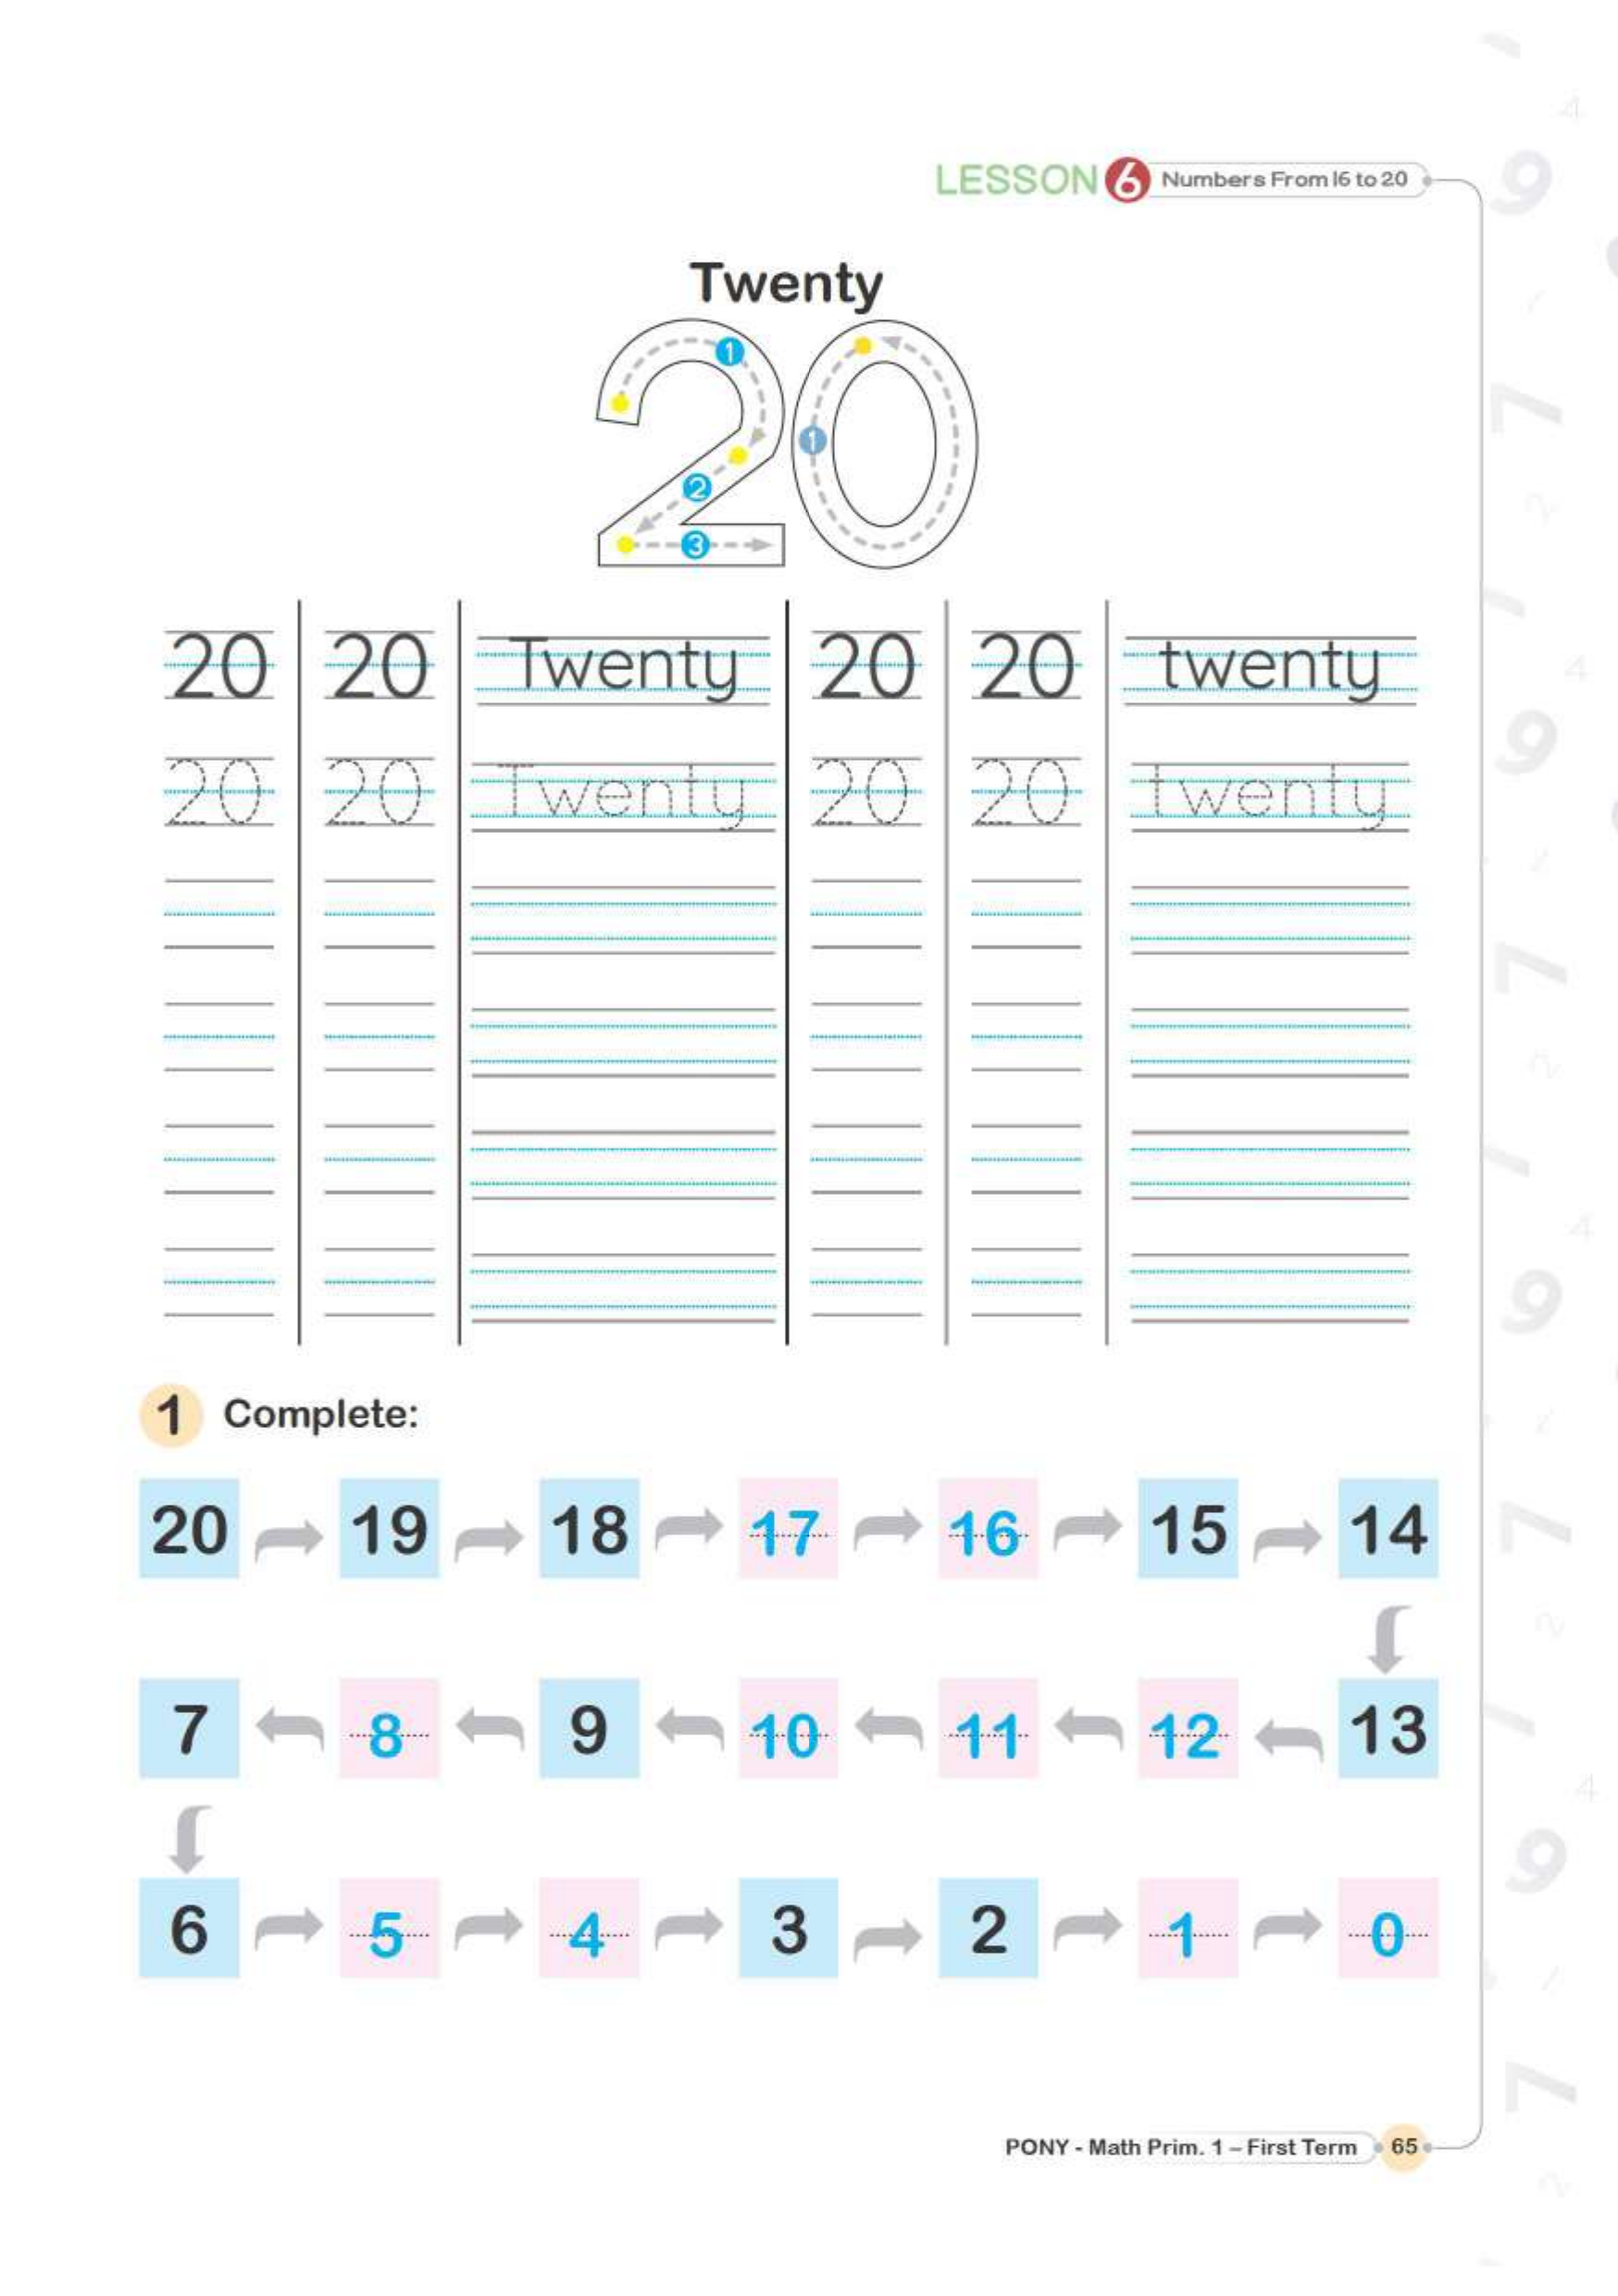 LESSON 6 Numbers From 16 to 20
Twenty
20
1
1
2
3
20 20 Twenty 20 20 twenty
20 20 Twenty 20 20 twenty
1 Complete:
20 19 18 17 16 15 14
7 8 9 10 11 12 13
6 5 4 3 2 1 0
PONY - Math Prim. 1 – First Term 65